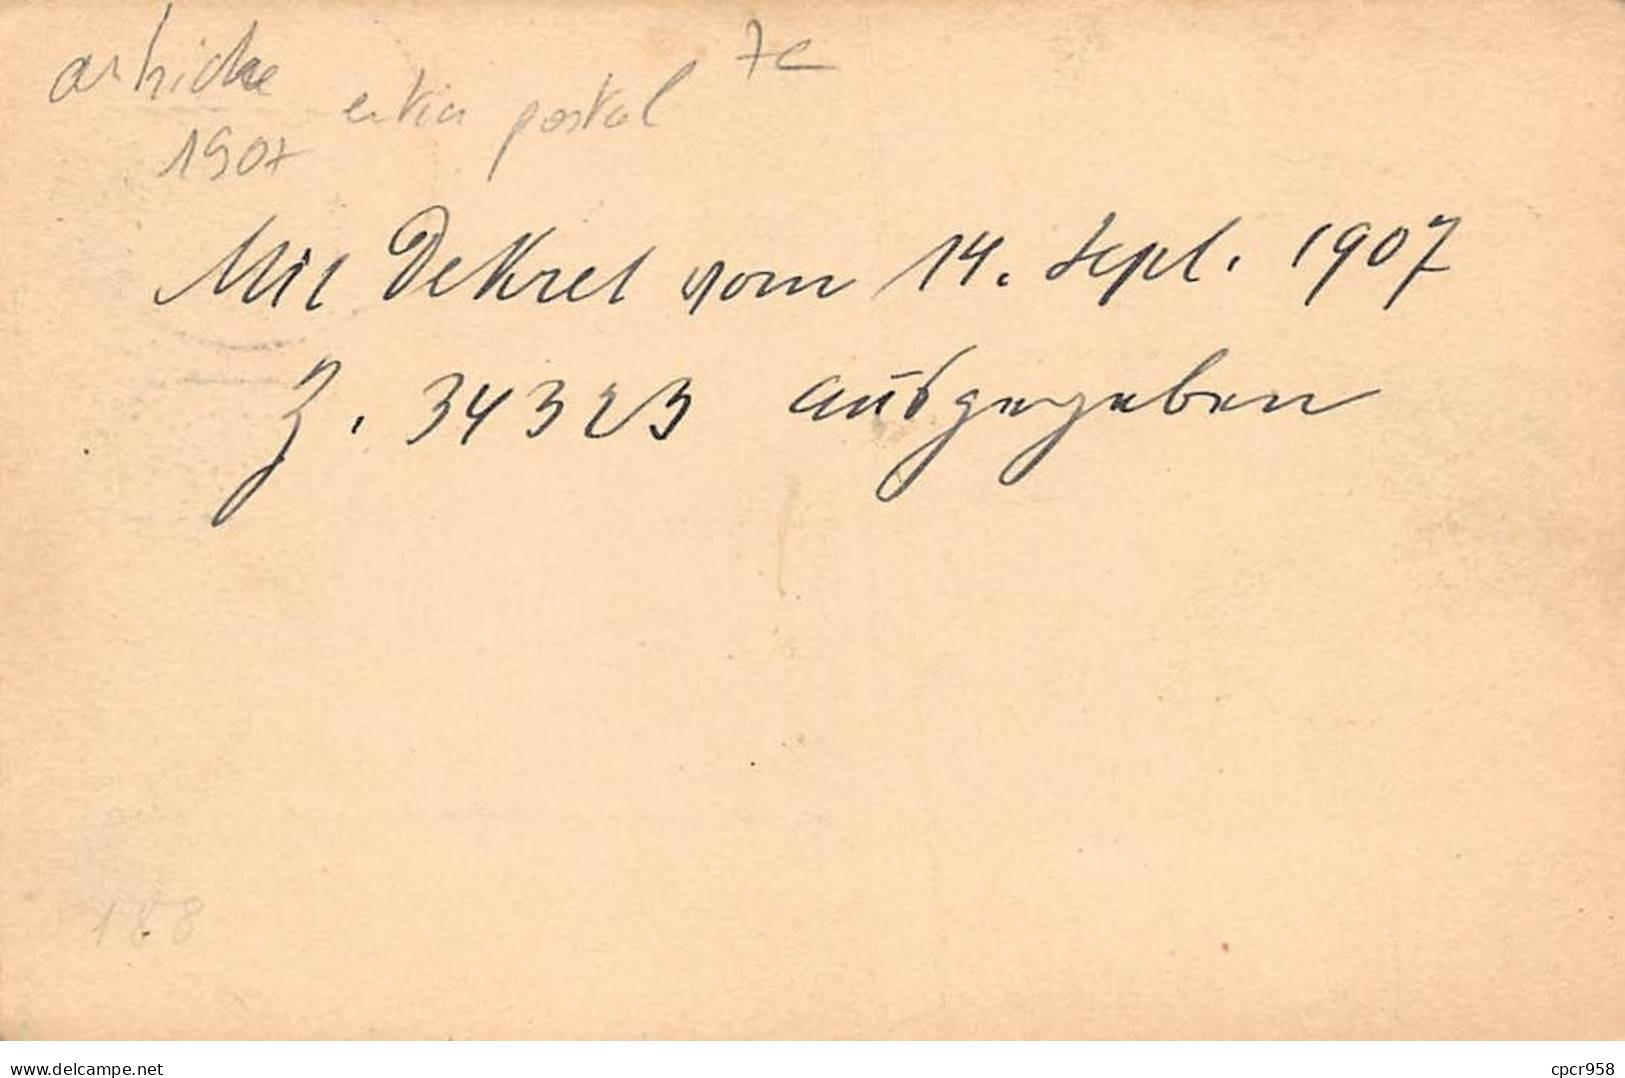 autriche 7c
entier postal
1907
Mit Dekret vom 14. Sept. 1907
Z. 34323 ausgegeben
188
www.delcampe.net cpcr958